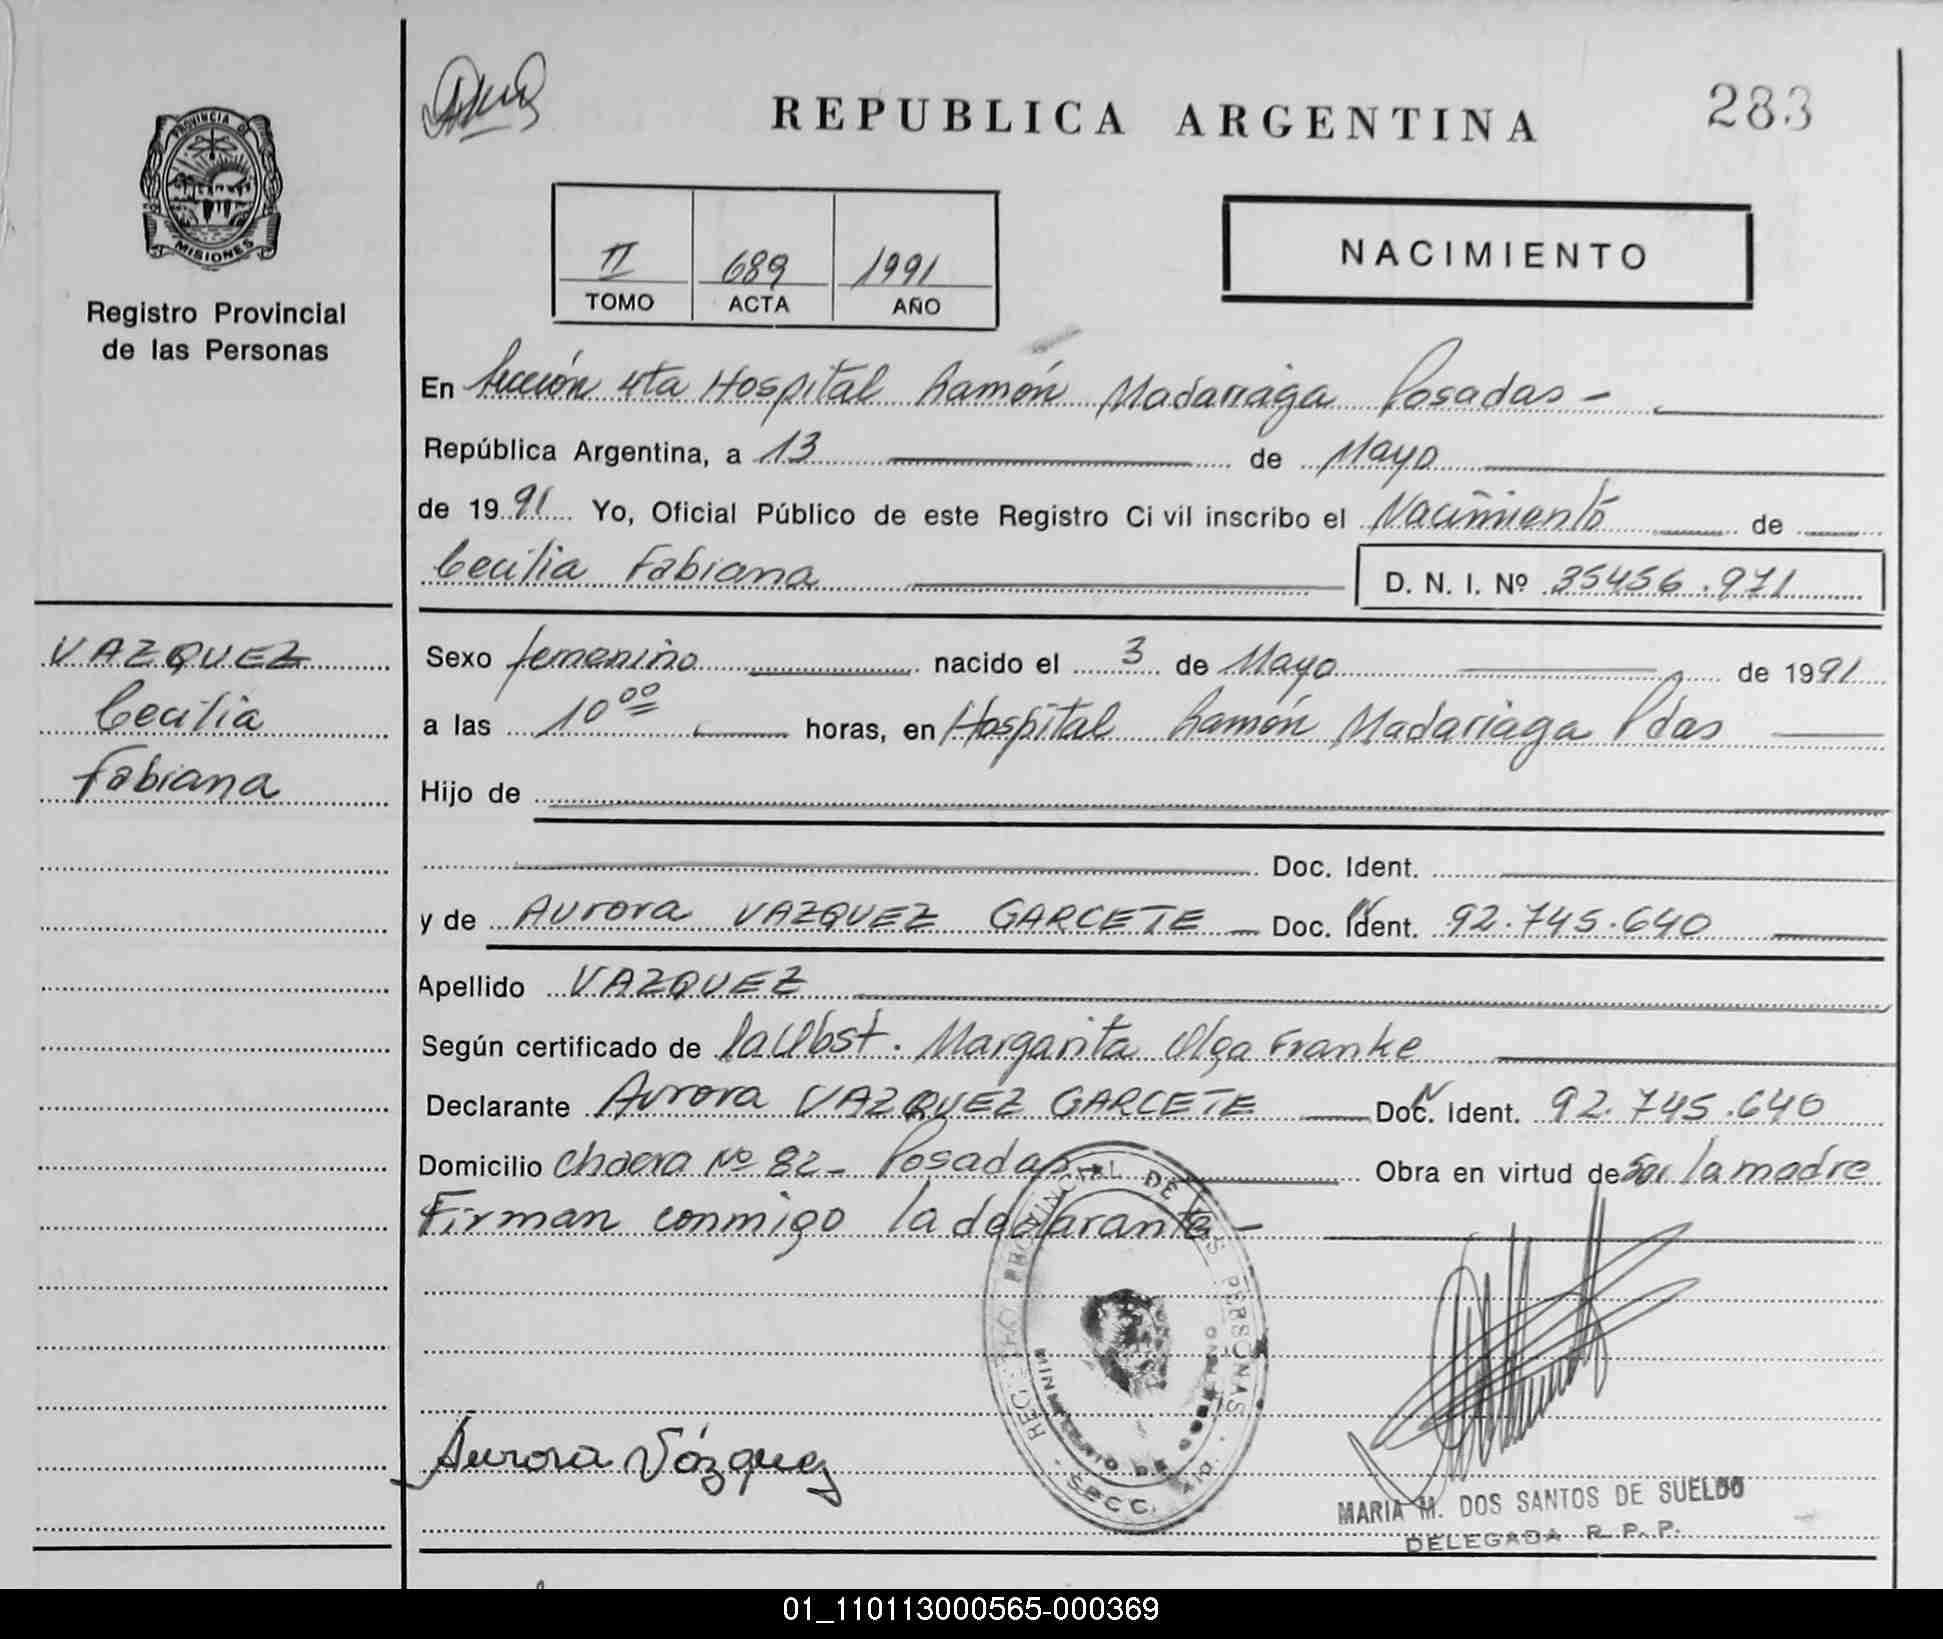 REPUBLICA ARGENTINA
283
PROVINCIA DE
MISIONES
Registro Provincial
de las Personas
II 689 1991
TOMO ACTA AÑO
NACIMIENTO
En Sección 4ta Hospital Ramón Madariaga Posadas -
República Argentina, a 13 de Mayo
de 1991 Yo, Oficial Público de este Registro Civil inscribo el Nacimiento de
Cecilia Fabiana D. N. I. Nº 35456.971
VAZQUEZ
Cecilia
Fabiana
Sexo femenino nacido el 3 de Mayo de 1991
a las 10 00 horas, en Hospital Ramón Madariaga Pdas
Hijo de
Doc. Ident.
y de Aurora VAZQUEZ GARCETE - Doc. Ident. 92.745.640
Apellido VAZQUEZ
Según certificado de la Obst. Margarita Olga Franke
Declarante Aurora VAZQUEZ GARCETE Doc. Ident. 92.745.640
Domicilio Chacra Nº 82 - Posadas - Obra en virtud de Ser la madre
Firman conmigo la declarante -
REGISTRO PROVINCIAL DE LAS PERSONAS
MINISTERIO DE GOBIERNO
SECC.
Aurora Vázquez
MARIA M. DOS SANTOS DE SUELDO
DELEGADA R. P. P.
01_110113000565-000369